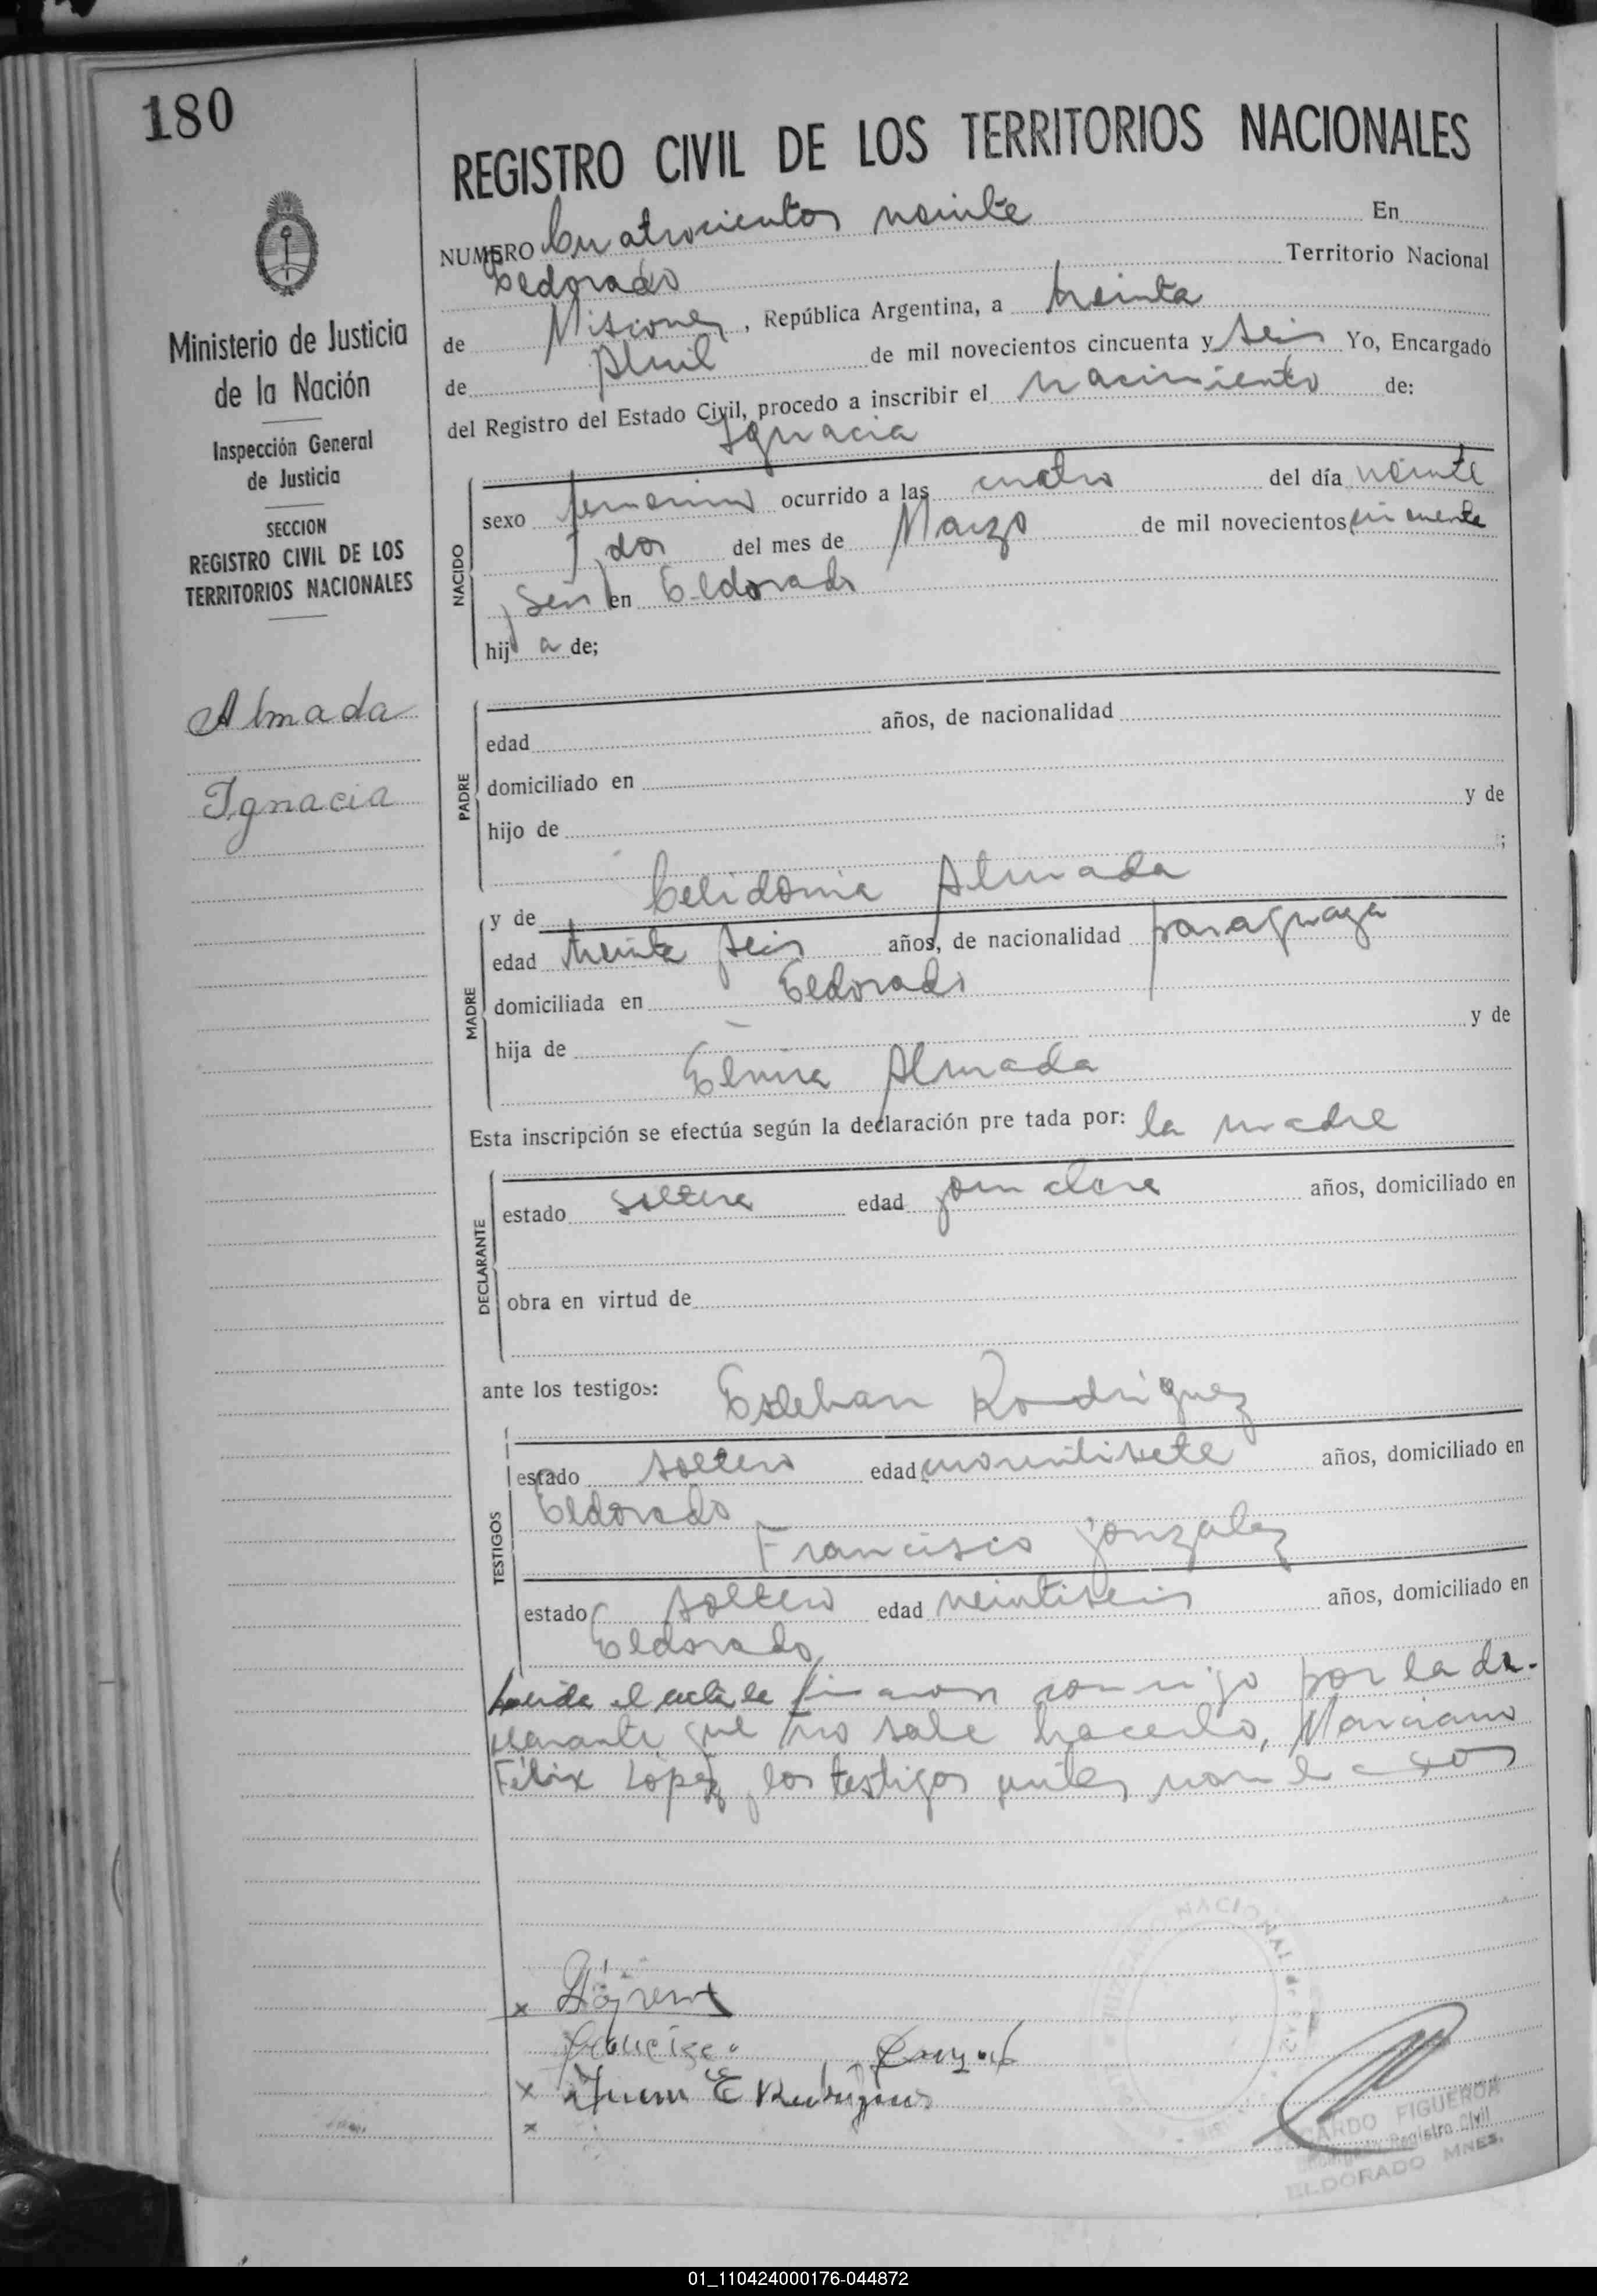 180
REGISTRO CIVIL DE LOS TERRITORIOS NACIONALES
NUMERO Cuatrocientos veinte En
Eldorado Territorio Nacional
de Misiones, República Argentina, a treinta
de Abril de mil novecientos cincuenta y seis Yo, Encargado
del Registro del Estado Civil, procedo a inscribir el nacimiento de:
Ignacia
Ministerio de Justicia
de la Nación
Inspección General
de Justicia
SECCION
REGISTRO CIVIL DE LOS
TERRITORIOS NACIONALES
Almada
Ignacia
NACIDO
sexo femenino ocurrido a las cuatro del día veinte
dos del mes de Marzo de mil novecientos cincuenta
seis en Eldorado
hij a de;
PADRE
edad años, de nacionalidad
domiciliado en
hijo de y de
;
MADRE
y de Celidonia Almada
edad treinta seis años, de nacionalidad paraguaya
domiciliada en Eldorado
hija de y de
Elvira Almada
Esta inscripción se efectúa según la declaración pre tada por: la madre
DECLARANTE
estado soltera edad años, domiciliado en
obra en virtud de
ante los testigos: Esteban Rodriguez
TESTIGOS
estado soltero edad años, domiciliado en
Eldorado
Francisco Gonzalez
estado soltero edad veintiseis años, domiciliado en
Eldorado
Leida el acta la firmaron conmigo por la de-
clarante que no sabe hacerlo, Marciano
Félix Lopez, los testigos antes
x
Francisco
x Juan E Rodriguez
x
NACIONAL
JUZGADO
FIGUEROA
Registro Civil
ELDORADO MNES.
01_110424000176-044872